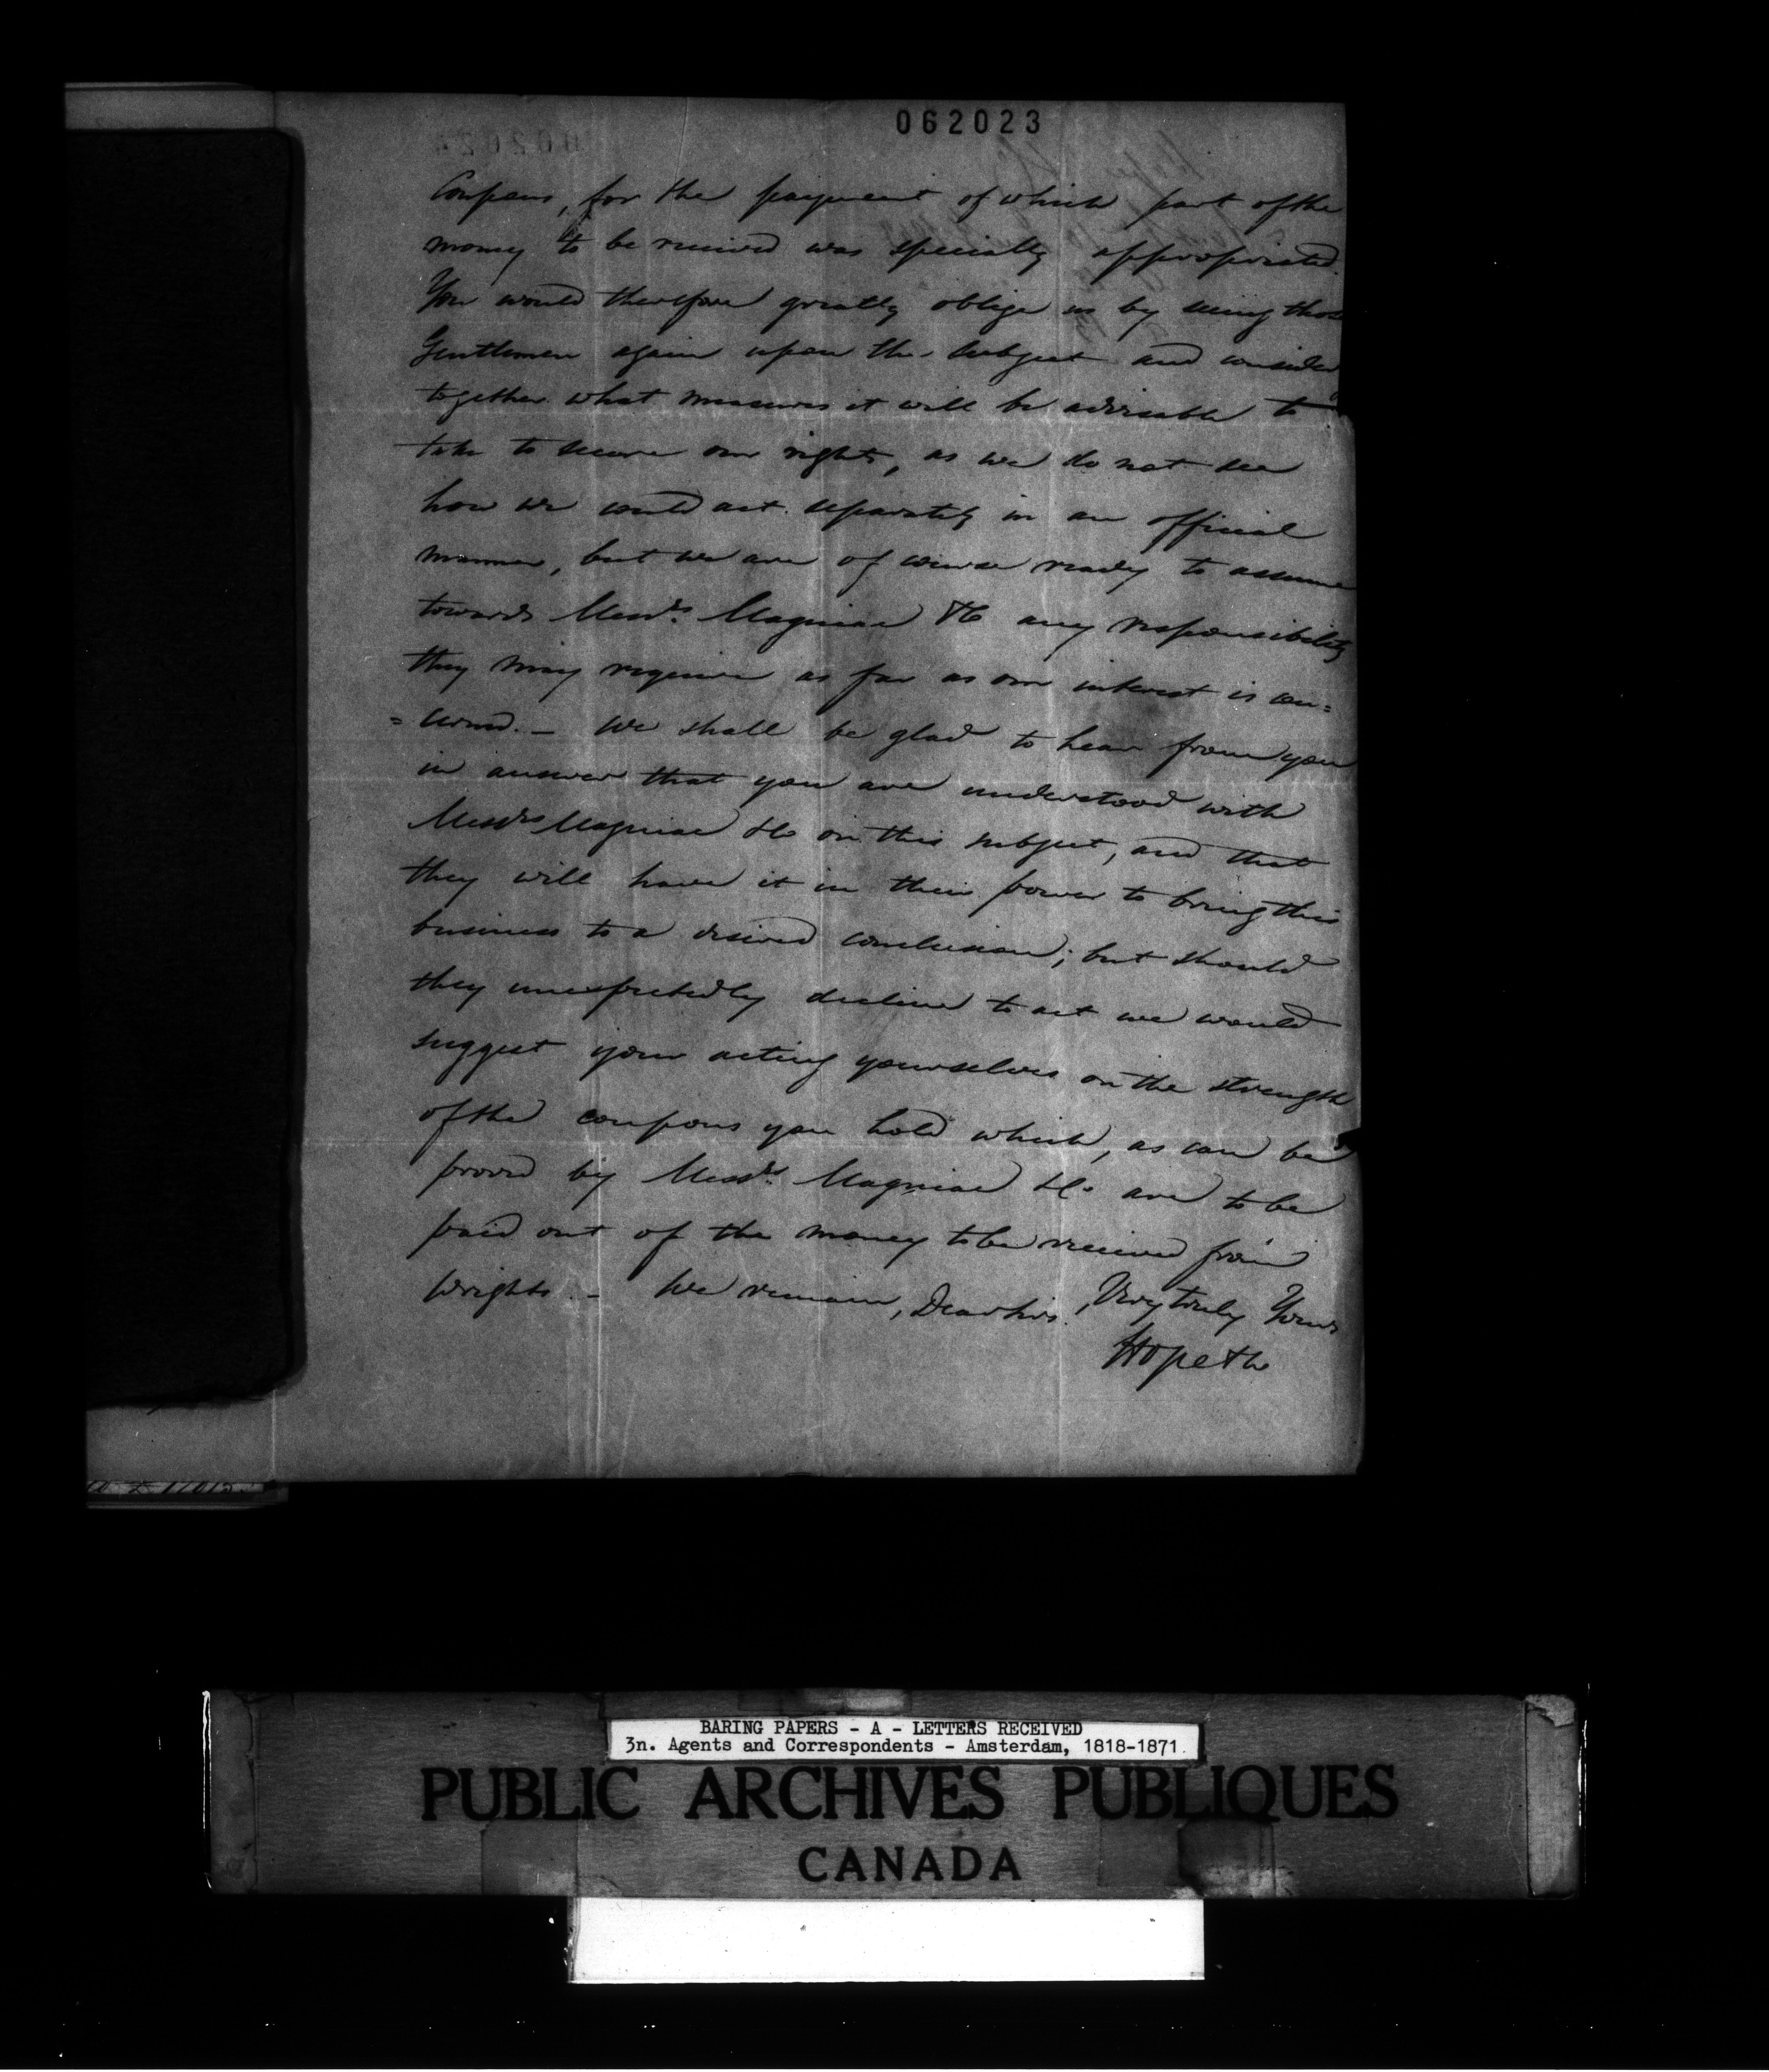 062023
Coupons, for the payment of which part of the
money to be received was specially appropriated.
You would therefore greatly oblige us by seeing those
Gentlemen again upon the subject and consider
together what measures it will be advisable to
take to secure our rights, as we do not see
how we could act separately in an official
manner, but we are of course ready to assume
towards Messrs. Magniac &Co any responsibility
they may require as far as our interest is con=
=cerned. — We shall be glad to hear from you
in answer that you are understood with
Messrs Magniac &Co on this subject, and that
they will have it in their power to bring this
business to a desired conclusion; but should
they unexpectedly decline to act we would
suggest your acting yourselves on the strength
of the coupons you hold which, as can be
proved by Messrs. Magniac &Co are to be
paid out of the money to be received from
Wrights. — We remain, Dear Sirs, Very truly Yours
Hope &Co
BARING PAPERS - A - LETTERS RECEIVED
3n. Agents and Correspondents - Amsterdam, 1818-1871.
PUBLIC ARCHIVES PUBLIQUES
CANADA